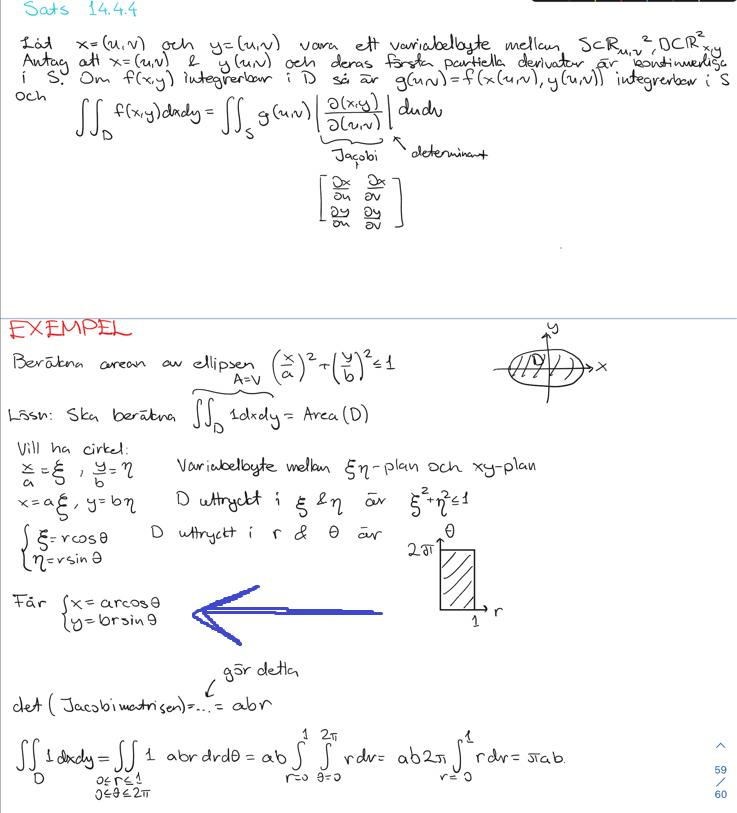 Sats 14.4.4
Låt x=(u,v) och y=(u,v) vara ett variabelbyte mellan S⊂ℝ_{u,v}², D⊂ℝ²_{x,y}
Antag att x=(u,v) & y(u,v) och deras första partiella derivator är kontinuerliga
i S. Om f(x,y) integrerbar i D så är g(u,v)=f(x(u,v), y(u,v)) integrerbar i S
och
∬_D f(x,y)dxdy = ∬_S g(u,v) |∂(x,y)/∂(u,v)| dudv
Jacobi determinant
[∂x/∂u ∂x/∂v
∂y/∂u ∂y/∂v]
EXEMPEL
Beräkna arean av ellipsen (x/a)²+(y/b)²≤1
y
D
x
A=V
Lösn: Ska beräkna ∬_D 1dxdy = Area(D)
Vill ha cirkel:
x/a=ξ, y/b=η Variabelbyte mellan ξη-plan och xy-plan
x=aξ, y=bη D uttryckt i ξ & η är ξ²+η²≤1
{ξ=rcosθ D uttryckt i r & θ är
{η=rsinθ
θ
2π
r
1
Får {x=arcosθ
{y=brsinθ
gör detta
det(Jacobimatrisen)=...= abr
∬_D 1dxdy = ∬_{0≤r≤1, 0≤θ≤2π} 1 abr drdθ = ab ∫_{r=0}^{1} ∫_{θ=0}^{2π} rdr = ab2π ∫_{r=0}^{1} rdr = πab.
59
/
60